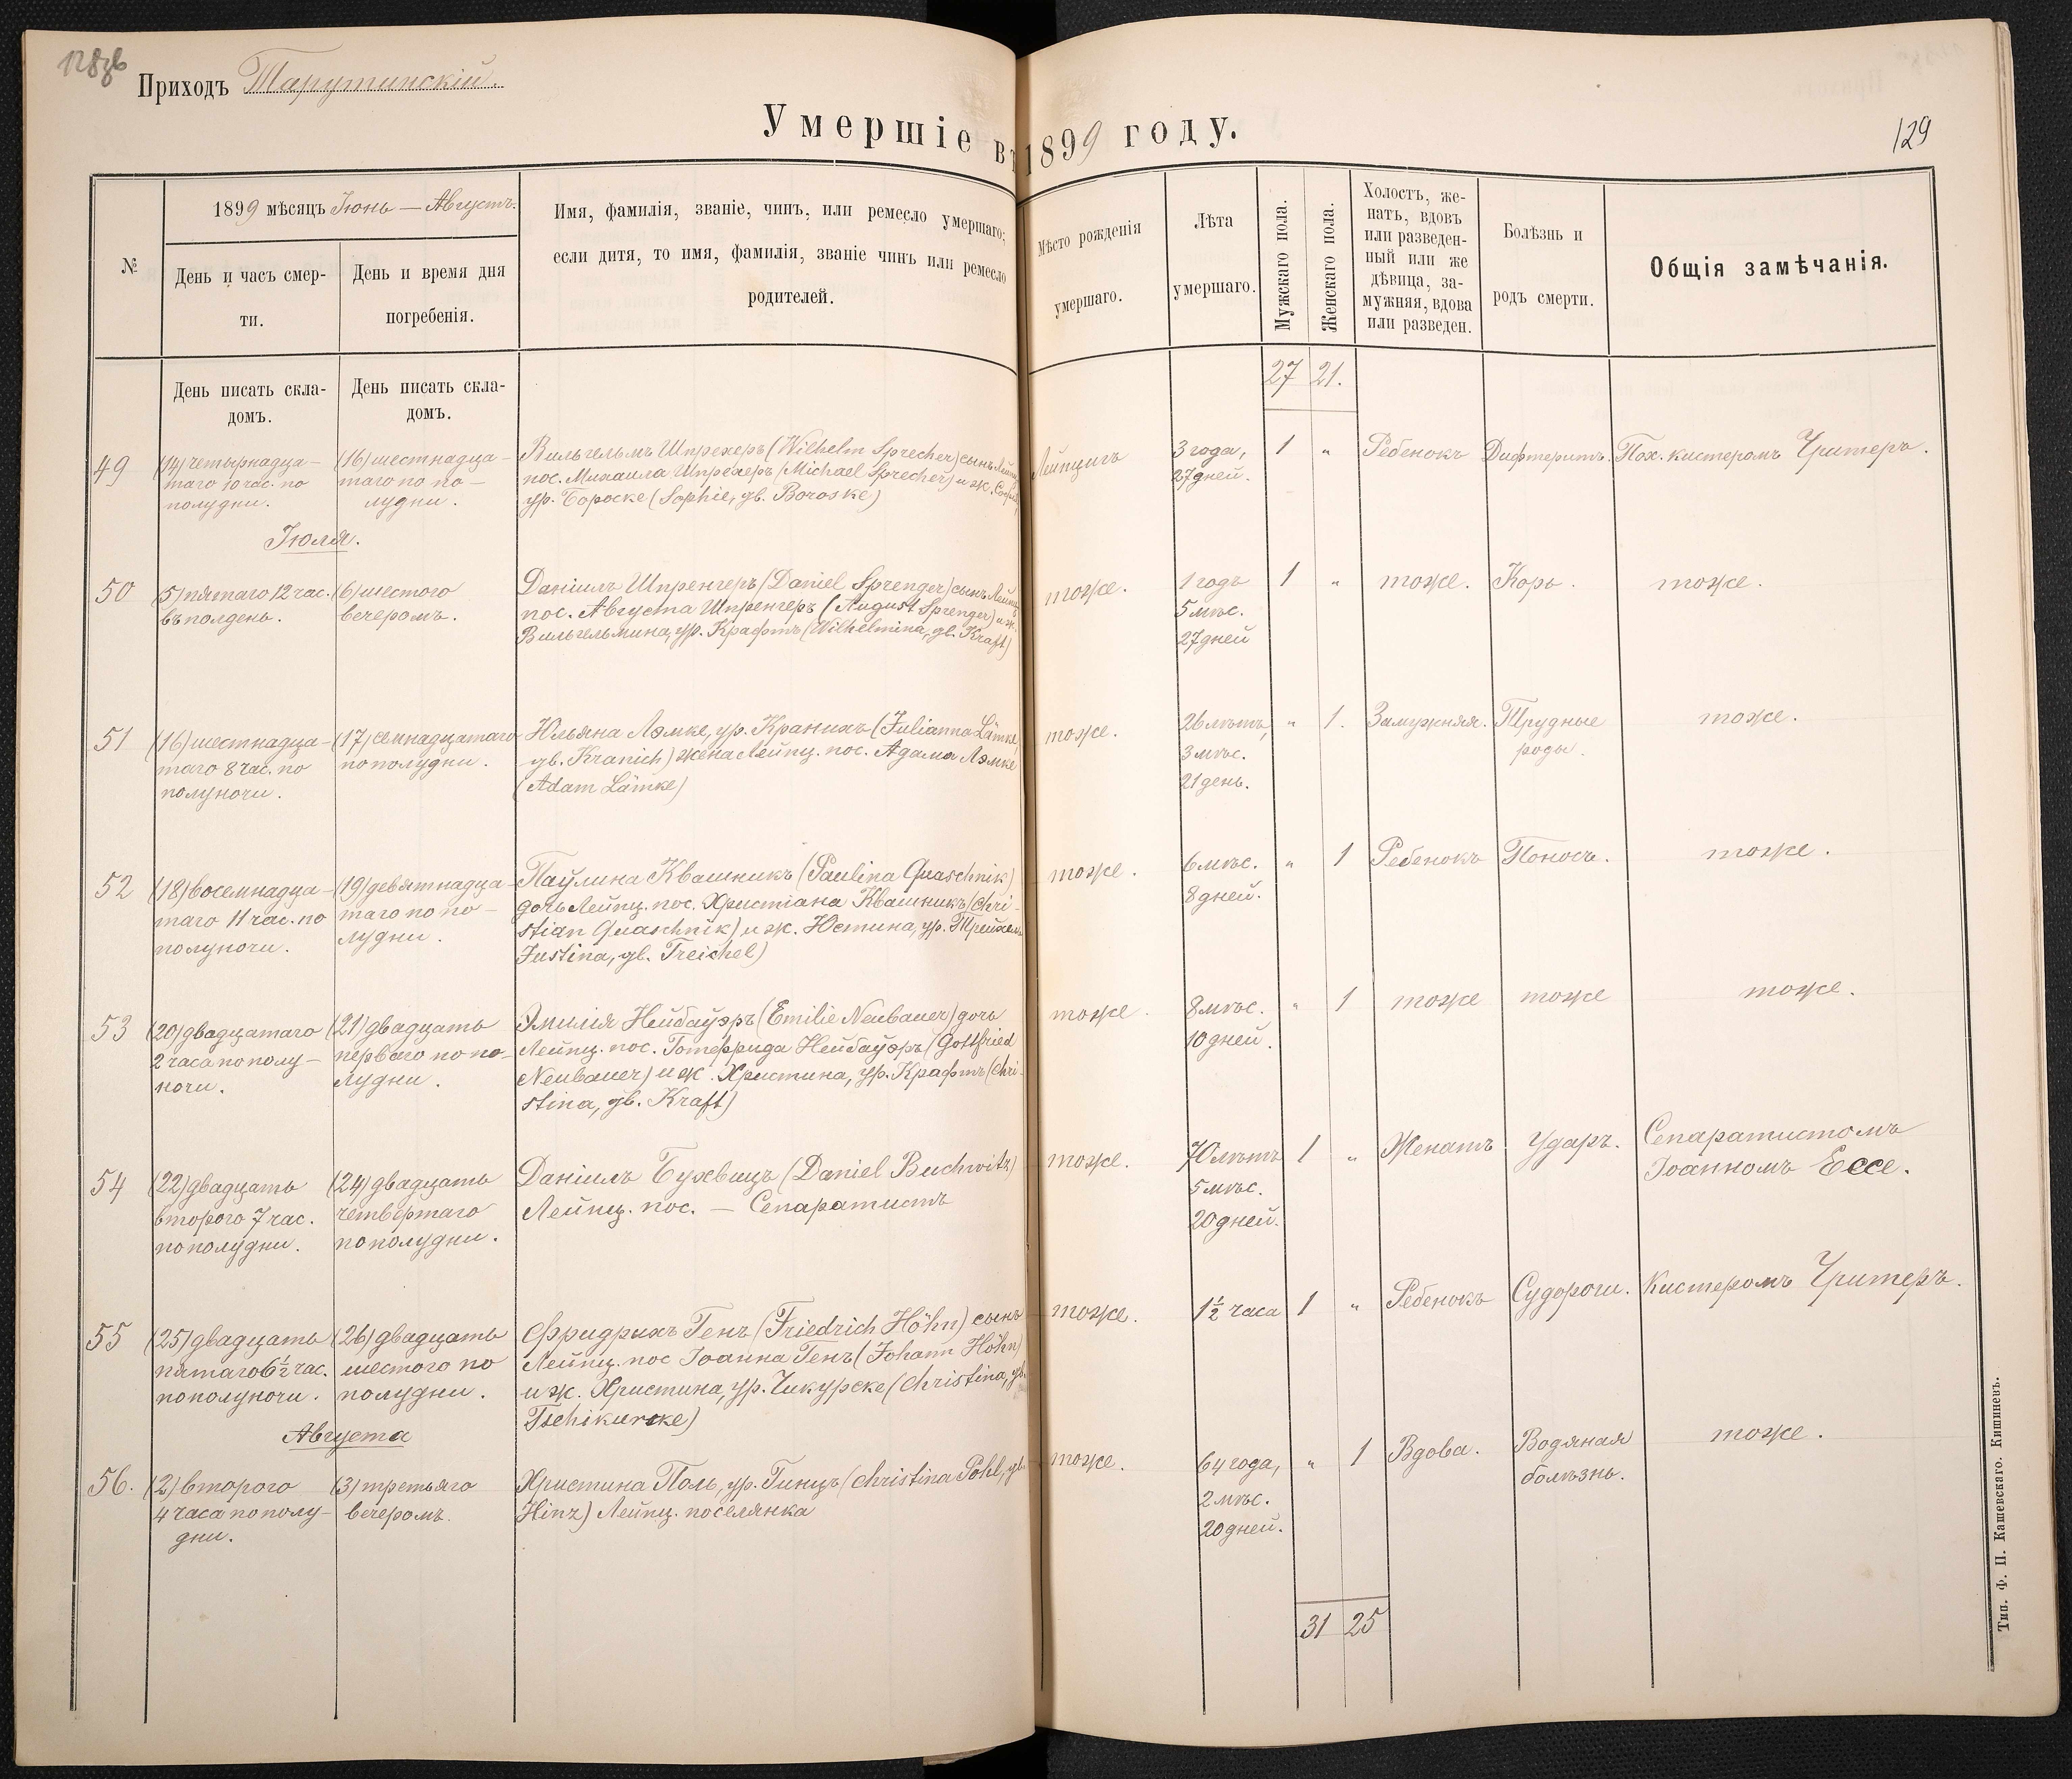 128об
Приходъ Тарутинскій.
Умершіе въ 1899 году.
129
№
1899 мѣсяцъ Іюнь — Августъ.
День и часъ смер-
ти.
День и время дня
погребенія.
Имя, фамилія, званіе, чинъ, или ремесло умершаго;
если дитя, то имя, фамилія, званіе чинъ или ремесло
родителей.
Мѣсто рожденія
умершаго.
Лѣта
умершаго.
Мужскаго пола.
Женскаго пола.
Холостъ, же-
натъ, вдовъ
или разведен-
ный или же
дѣвица, за-
мужняя, вдова
или разведен.
Болѣзнь и
родъ смерти.
Общія замѣчанія.
День писать скла-
домъ.
День писать скла-
домъ.
27 21.
49
(14) четырнадца-
таго 10 час. по
полудни.
(16) шестнадца-
таго по по-
лудни.
Вильгельмъ Шпрехеръ (Wilhelm Sprecher) сынъ Лейпц.
пос. Михаила Шпрехеръ (Michael Sprecher) и ж. Софія,
ур. Бороске (Sophie, gb. Boroske)
Лейпцигъ
3 года,
27 дней.
1
"
Ребенокъ
Дифтеритъ.
Пох. кистеромъ Чритеръ.
Іюля.
50
(5) пятаго 12 час.
въ полдень.
(6) шестого
вечеромъ.
Даніилъ Шпренгеръ (Daniel Sprenger) сынъ Лейпц.
пос. Августа Шпренгеръ (August Sprenger) и ж.
Вильгельмина, ур. Крафтъ (Wilhelmina, gb. Kraft)
тоже.
1 годъ
5 мѣс.
27 дней
1
"
тоже.
Корь.
тоже.
51
(16) шестнадца-
таго 8 час. по
полуночи.
(17) семнадцатаго
по полудни.
Юльяна Лэмке, ур. Кранихъ (Julianna Lämke,
gb. Kranich) жена Лейпц. пос. Адама Лэмке
(Adam Lämke)
тоже.
26 лѣтъ,
3 мѣс.
21 день.
"
1.
Замужняя.
Трудные
роды.
тоже.
52
(18) восемнадца-
таго 11 час. по
полуночи.
(19) девятнадца-
таго по по-
лудни.
Паулина Квашникъ (Paulina Quaschnik)
дочь Лейпц. пос. Христіана Квашникъ (Chri-
stian Quaschnik) и ж. Юстина, ур. Трейхель
Justina, gb. Treichel)
тоже.
6 мѣс.
8 дней.
"
1
Ребенокъ
Поносъ.
тоже.
53
(20) двадцатаго
2 часа по полу-
ночи.
(21) двадцать
перваго по по-
лудни.
Эмилія Нейбауэръ (Emilie Neubauer) дочь
Лейпц. пос. Готфрида Нейбауэръ (Gottfried
Neubauer) и ж. Христина, ур. Крафтъ (Chri-
stina, gb. Kraft)
тоже.
8 мѣс.
10 дней.
"
1
тоже
тоже
тоже.
54
(22) двадцать
второго 7 час.
по полудни.
(24) двадцать
четвертаго
по полудни.
Даніилъ Бухвицъ (Daniel Buchwitz)
Лейпц. пос. — Сепаратистъ
тоже.
70 лѣтъ
5 мѣс.
20 дней.
1
"
Женатъ.
Ударъ.
Сепаратистомъ
Іоанномъ Ессе.
55
(25) двадцать
пятаго 6½ час.
по полуночи.
(26) двадцать
шестого по
полудни.
Фридрихъ Генъ (Friedrich Höhn) сынъ
Лейпц. пос Іоанна Генъ (Johann Höhn)
и ж. Христина, ур. Чикурске (Christina, gb.
Tschikurske)
тоже.
1½ часа
1
"
Ребенокъ
Судороги.
Кистеромъ Чритеръ.
Августа
56.
(2) второго
4 часа по полу-
дни.
(3) третьяго
вечеромъ.
Христина Поль, ур. Гинцъ (Christina Pohl, gb.
Hinz) Лейпц. поселянка
тоже.
64 года,
2 мѣс.
20 дней.
"
1
Вдова.
Водяная
болѣзнь.
тоже.
31 25
Тип. Ф. П. Кашевскаго. Кишиневъ.